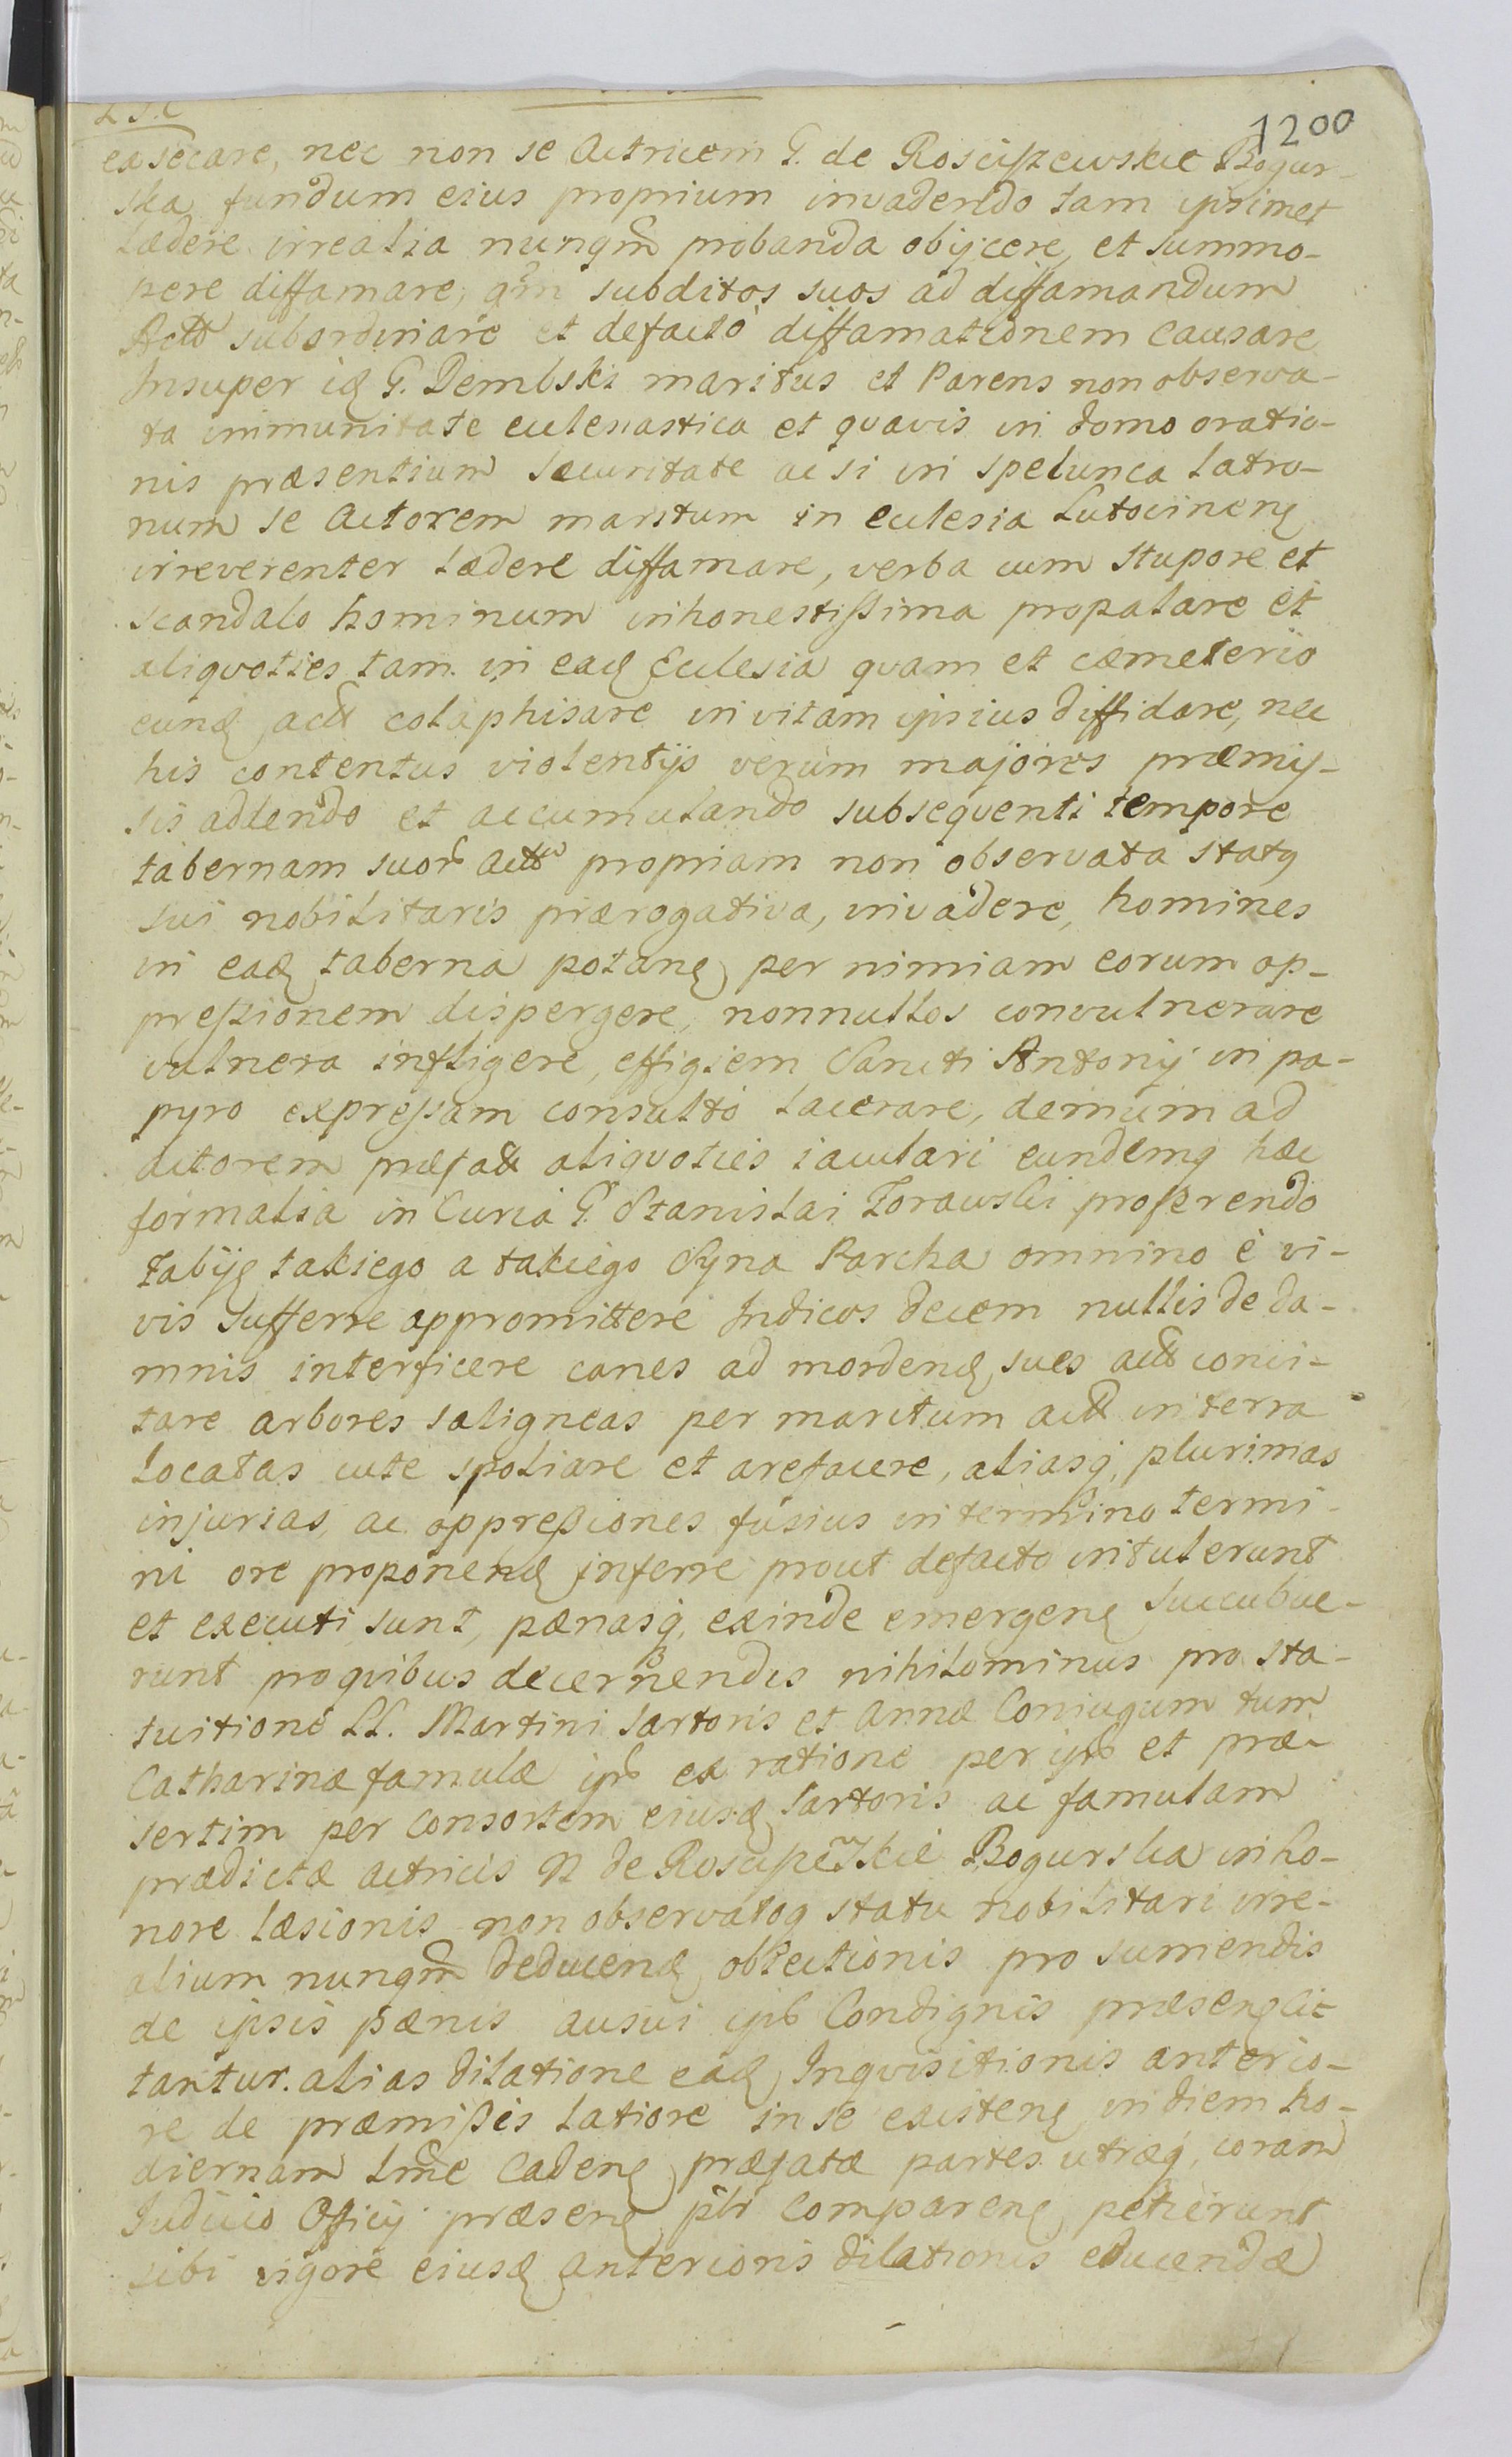 1200
exsecare, nec non se Actricem G. de Rosciszewskie Bogur-
ska fundum eius proprium invadendo tam ipsimet
lædere irrealia nunqm̃ probanda obijcere, et summo-
pere diffamare, qm̃ subditos suos ad diffamandum
subordinare et defacto diffamationem causare
Insuper idẽ G. Dembski maritus et Parens non observa-
ta immunitate eclesiastica et qvavis in domo oratio-
nis præsentium securitate ac si in spelunca latro-
num se Actorem maritum in eclesia Lutocinenẽ
irreverenter lædere diffamare, verba cum stupore et
scandalo hominum inhonestissima propalare et
aliqvoties tam in eadẽ Eclesia qvam et cæmeterio
eundẽ act̃ colaphisare in vitam ipsius diffidare, nec
his contentus violentijs verùm majores præmis-
sis addendo et accumulando subseqventi tempore
tabernam suor̃ act̃ propriam non observata statq
sui nobilitaris prærogativa, invadere, homines
in eadẽ taberna potanẽ per nimiam eorum op-
pressionem dispergere, nonnullos convulnerare
vulnera infligere, effigiem Sancti Antonij in pa-
pyro expressam consultò lacerare, demùm ad
actorem præfat̃ aliqvoties iaculari eundemq hæc
formalia in Curia G. Stanislai Zorawski proferendo
Zabiję takiego a takiego Syna Parcha omnino è vi-
vis sufferre appromittere Indicos decem nullis de da-
mnis interficere canes ad mordenẽ sues act̃ conci-
tare arbores saligneas per maritum act̃ in terra
locatas cute spoliare et arefacere, aliasq, plurimas
injurias, ac oppressiones fusius in termino termi-
ni ore proponenẽ inferre prout defacto intulerunt
et executi sunt, pænasq, exinde emergenẽ succubue-
runt pro qvibus decernendis nihilominus pro sta-
tuitione LL. Martini Sartoris et Annæ Coniugum tum
Catharinæ famulæ ips̃ ex ratione per ips̃ et præ-
sertim per Consortem eiusdẽ Sartoris ac famulam
prædictæ actricis N de Rosciszẽskie Bogurska in ho-
nore læsionis non observatoq statu nobilitari irre-
alium nunqm̃ deducenẽ obiectionis pro sumendis
de ipsis pænis ausui ips̃ Condignis præsenẽ Ci-
tantur. alias dilatione eadẽ Inqvisitionis anterio-
re de præmissis latiore in se existenẽ in diem ho-
diernam lm̃e Cadenẽ præfatæ partes utræq, coram
Iudicio Officij præsenẽ plr̃ Comparenẽ petierunt
sibi vigore eiusdẽ anterioris dilationis educendæ